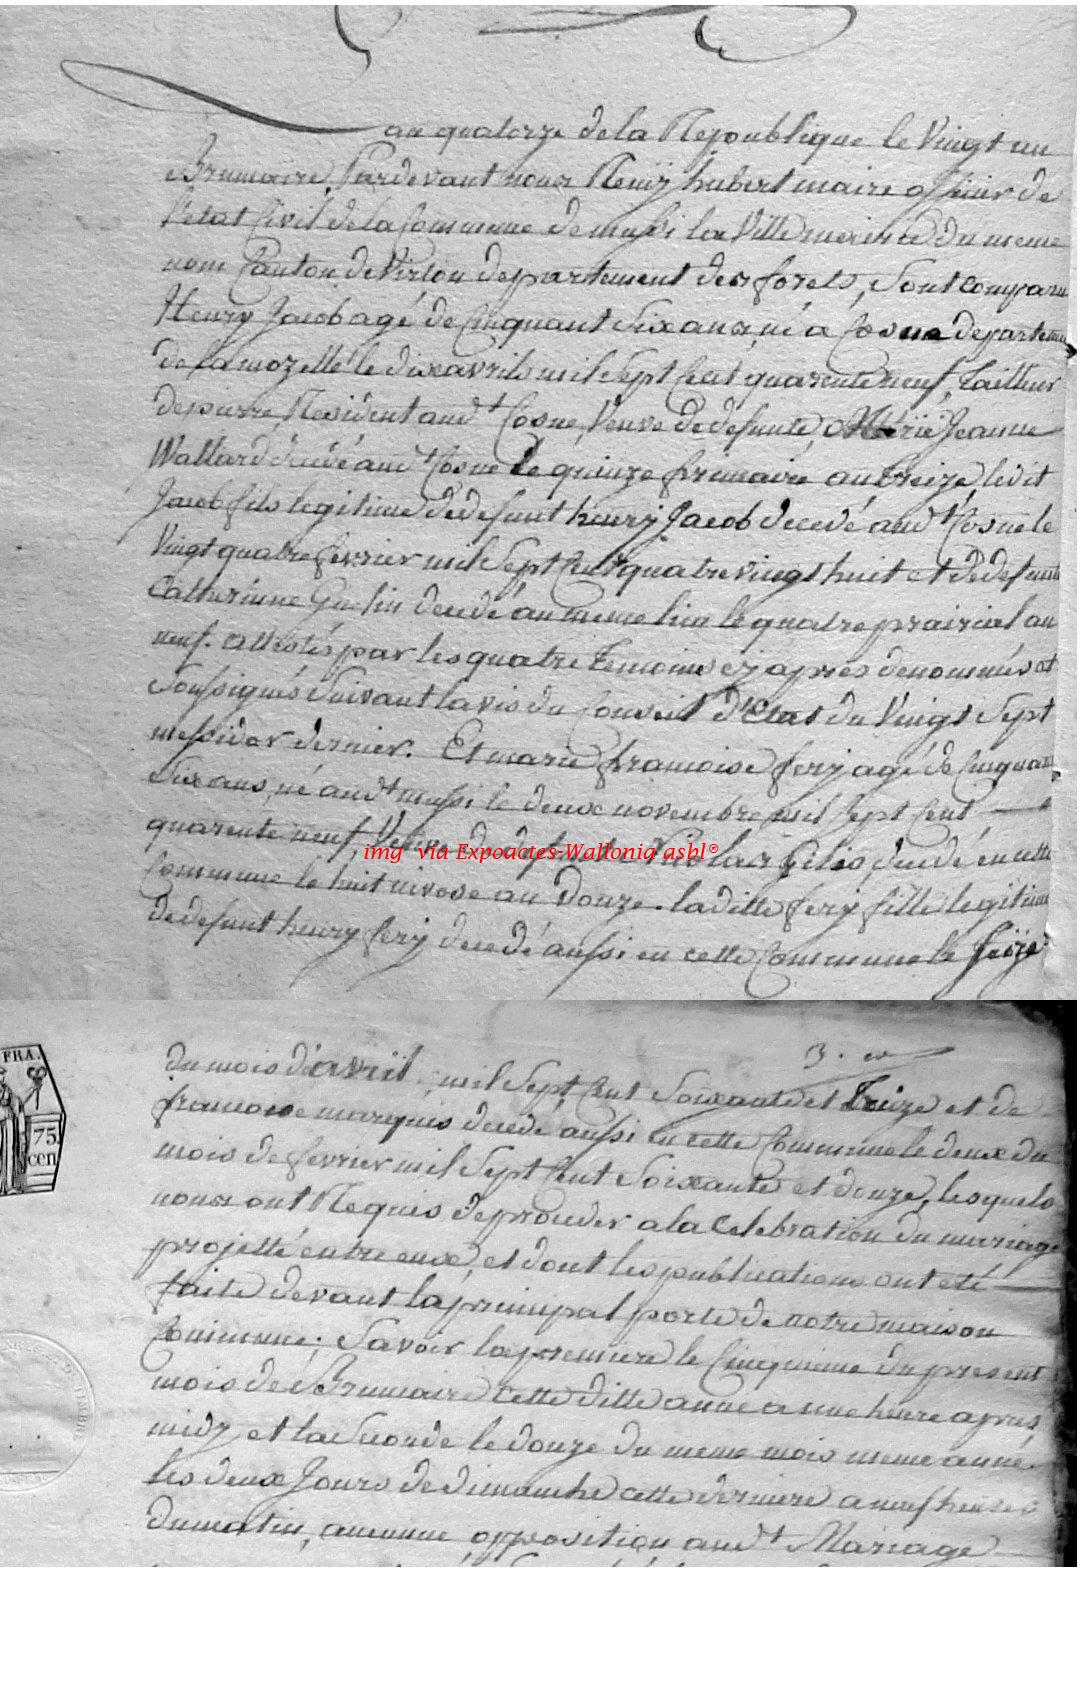 an quatorze de la Republique le Vingt un
Brumaire, Pardevant nous Remÿ hubert maire officier de
l'etat Civil de la Commune de mussi la Ville mairie du meme
nom Canton de Virton departement des forets, sont comparu
Henry Jacob agé de Cinquant Six ans, né a Cosne departem
de la mozelle le dix avrils mil Sept Cent quarente neuf, tailleur
de pierre, Resident aud.t Cosne, Veuve de defunte, Marie Jeanne
Wallard décédé aud.t Cosne le quinze frimaire an treize, ledit
Jacob fils legitime de defunt henrÿ Jacob decedé aud.t Cosne le
Vingt quatre fevrier mil Sept Cent quatre vingt huit et de defunte
Catherinne decedé au meme lieu le quatre prairial an
neuf. attestés par les quatre temoins cy apres denommés et
Soussignés Suivant lavis du Conseil d'Etat du Vingt Sept
messidor dernier. Et marie francoise ferÿ agé de Cinquan
Six ans, né aud.t mussi le deux novembre mil Sept Cent
quarente neuf, Veuve de defunt Nicolas Gilis, decedé en cette
img via Expoactes-Wallonia asbl®
Commune le huit nivose an Douze. laditte ferÿ fille legitime
de defunt henry ferÿ decedé aussi en cette Commune le Seize
3. er
FRA.
75.
cen
du mois d'avril mil Sept Cent Soixante et treize et de
francoise marquis decedé aussi en cette Commune le deux du
mois de fevrier mil Sept Cent Soixante et douze, lesquels
nous ont Requis de proceder a la Celebration du mariage
projetté entre eux, et dont les publications ont eté
faite devant la principal porte de notre maison
Commune; Savoir la premiere le Cinquieme du present
mois de Brumaire cette ditte anné a une heure apres
midÿ et la Seconde le douze du meme mois meme anné
les deux Jours de dimanche cette derniere a neuf heures
du matin, aucunne opposition aud.t Mariage